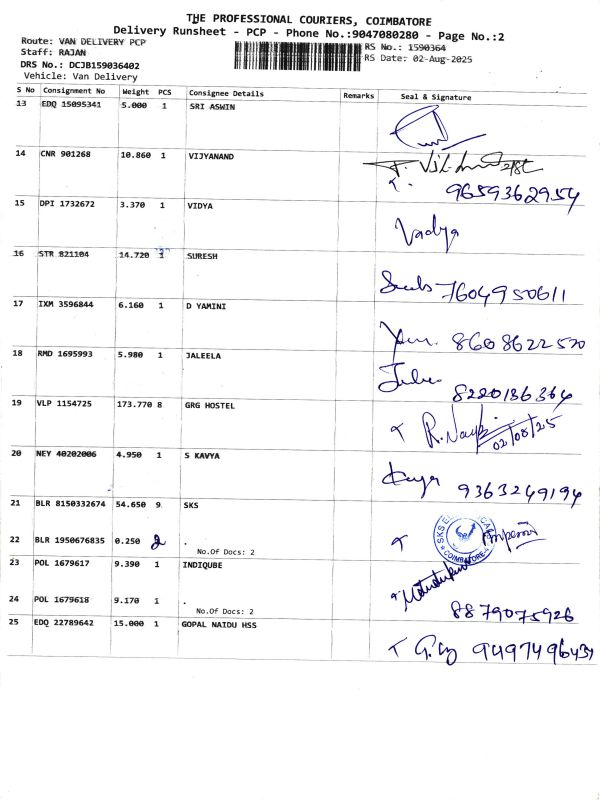 THE PROFESSIONAL COURIERS, COIMBATORE
Delivery Runsheet - PCP - Phone No.:9047080280 - Page No.:2
Route: VAN DELIVERY PCP RS No.: 1590364
Staff: RAJAN RS Date: 02-Aug-2025
DRS No.: DCJB159036402
Vehicle: Van Delivery
S No Consignment No Weight PCS Consignee Details Remarks Seal & Signature
13 EDQ 15095341 5.000 1 SRI ASWIN
14 CNR 901268 10.860 1 VIJYANAND
9659362954
15 DPI 1732672 3.370 1 VIDYA
Vadya
16 STR 821104 14.720 1 SURESH
7604950611
17 IXM 3596844 6.160 1 D YAMINI
8608622520
18 RMD 1695993 5.980 1 JALEELA
8220136364
19 VLP 1154725 173.770 8 GRG HOSTEL
02/08/25
20 NEY 40202006 4.950 1 S KAVYA
9363249194
21 BLR 8150332674 54.650 9 SKS
22 BLR 1950676835 0.250 2 .
No.Of Docs: 2
COIMBATORE
23 POL 1679617 9.390 1 INDIQUBE
24 POL 1679618 9.170 1 .
No.Of Docs: 2
8879075926
25 EDQ 22789642 15.000 1 GOPAL NAIDU HSS